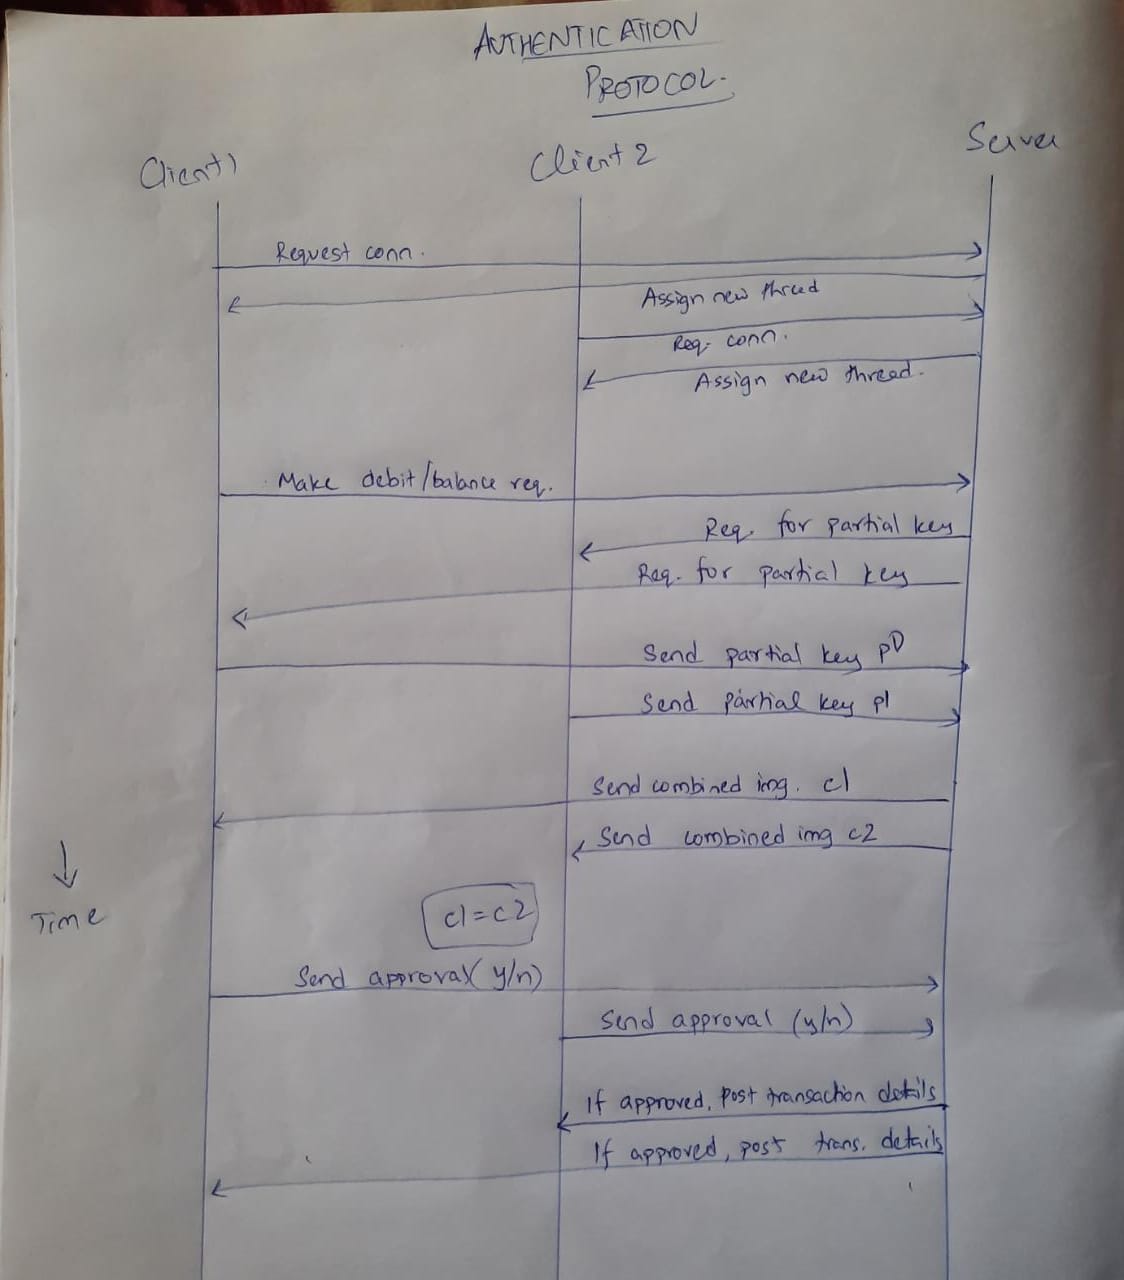 AUTHENTICATION
PROTOCOL.
Client1
Client 2
Server
Request conn.
Assign new thread
Req. conn.
Assign new thread.
Make debit/balance req.
Req. for partial key
Req. for partial key
Send partial key p0
Send partial key p1
Send combined img. c1
Send combined img c2
Time
c1=c2
Send approval (y/n)
Send approval (y/n)
If approved, post transaction details
If approved, post trans. details